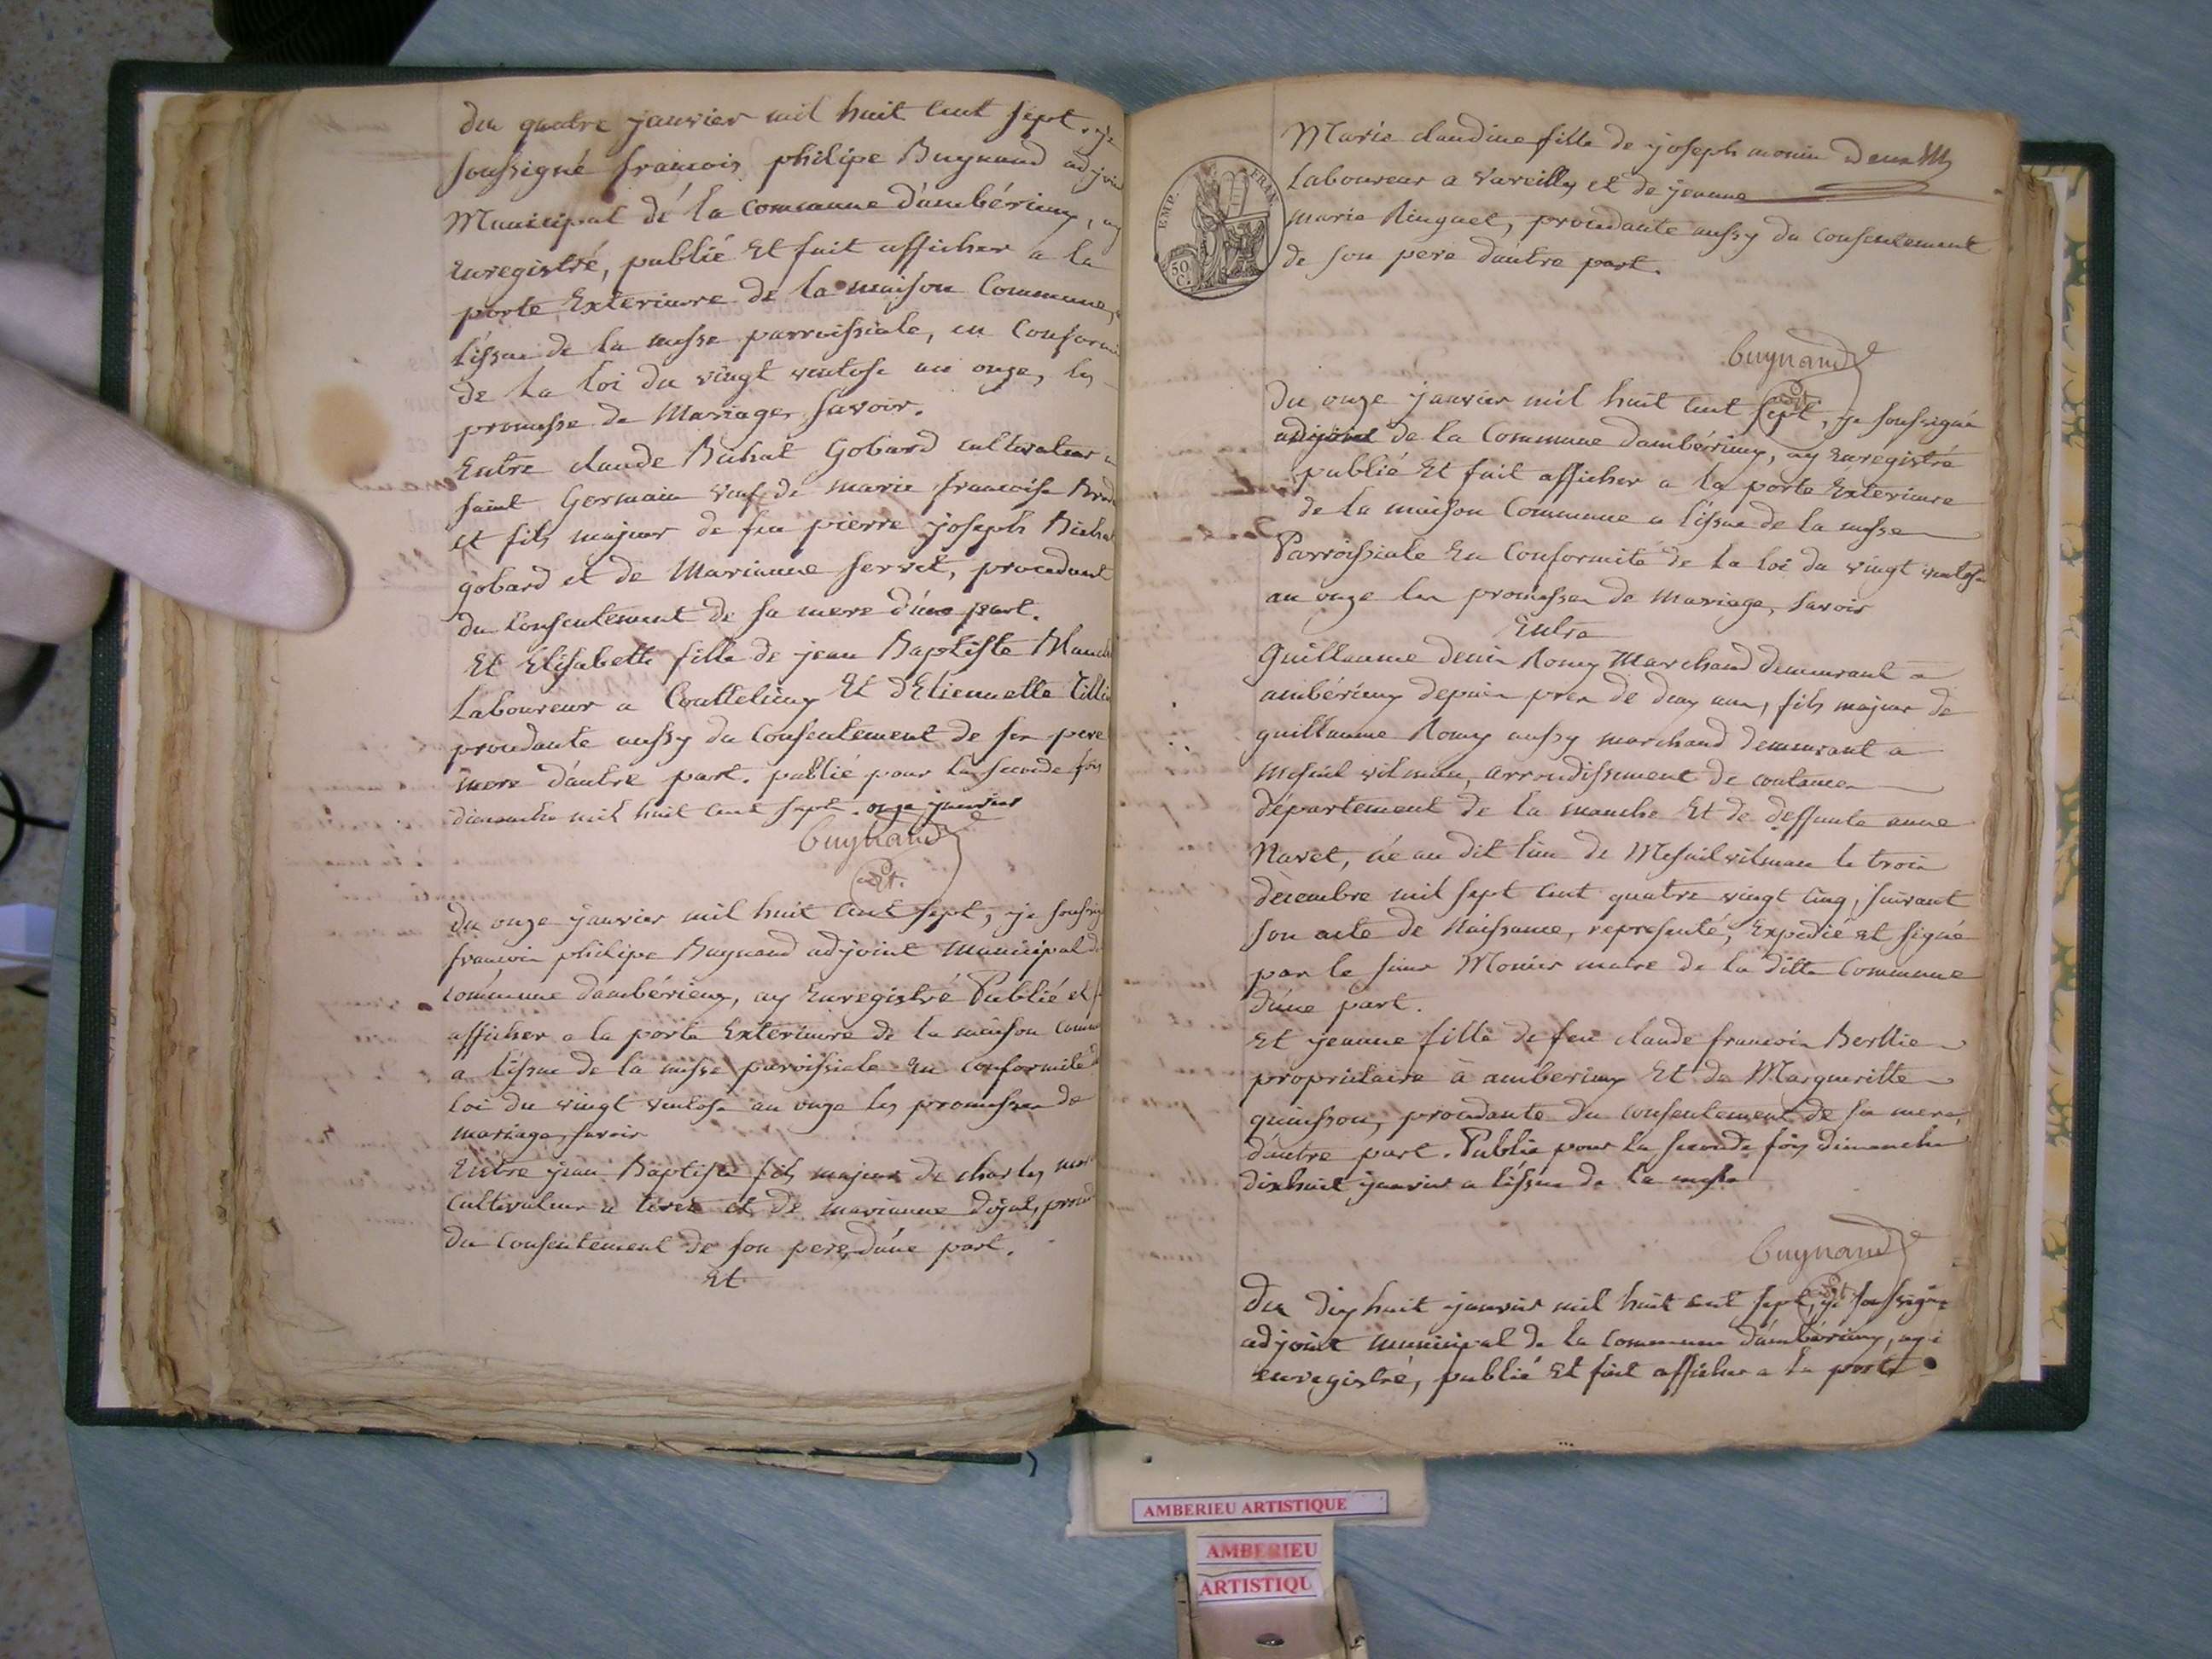 du quatre janvier mil huit cent sept, je
soussigné francois philipe Buynand adjoin
Municipal dé la Commune d'ambérieux, ay
Enregistré, publié Et fait afficher a la
porte Exterieure de la maison Commune, a
l'issue de la messe parroissiale, en Conformi
de La Loi du vingt ventose an onze, les
promesse de Mariage, Savoir.
Entre claude Bichat Gobard cultivateur a
saint Germain veuf de marie francoise
et fils majeur de feu pierre joseph Bichat
gobard et de Marianne servet, procedant
du Consentement de sa mere d'une part.
Et Elisabeth fille de jean Baptiste
Laboureur a Couttelieux Et d'Etiennette
procedante aussy du Consentement de ses pere
mere d'autre part. publié pour la seconde fois
dimanche mil huit cent sept. onze janvier
buynand
adjt.
du onze janvier mil huit cent sept, je soussig
francois philipe Buynand adjoint Municipal d
commune d'ambérieux, ay Enregistré Publié et f
afficher a la porte Exterieure de la maison comm
a l'issue de la messe paroissiale En conformité
loi du vingt ventose an onze les promesses de
mariage, savoir
Entre jean Baptiste fils majeur de charles
cultivateur a et de marianne proced
du Consentement de son pere, d'une part.
Et
EMP. FRAN.
50 C.
Marie claudine fille de joseph monin
Laboureur a vareilles et de jeanne
marie Ringuet, procedante aussy du consentement
de son pere d'autre part.
buynand
adjt
du onze janvier mil huit cent sept, je soussigné
adjoint de la Commune d'ambérieux, ay Enregistré
publié Et fait afficher a la porte Exterieure
de la maison Commune a l'issue de la messe
Parroissiale En Conformité de la loi du vingt ventose
an onze les promesses de mariage, savoir
Entre
Guillaume denis Romy Marchand demeurant a
ambérieux depuis pres de dix ans, fils majeur de
guillaume Romy aussy marchand demeurant a
Mesnil vilman, arrondissement de coutances
departement de la manche Et de deffunte anne
Navet, né au dit lieu de Mesnil vilman le trois
decembre mil sept cent quatre vingt cinq, suivant
son acte de Naissance, representé, Expedié et signé
par le sieur Monier maire de la ditte Commune
d'une part.
Et jeanne fille de feu claude francois Berllie
propriétaire à amberieux Et de Margueritte
quinsson, procedante du consentement de sa mere,
d'autre part. Publié pour la seconde fois dimanche
dixhuit janvier a l'issue de la messe
buynand
adjt
du dix huit janvier mil huit cent sept, je soussigné
adjoint municipal de la commune d'ambérieux, ay
enregistré, publié Et fait afficher a la porte
AMBERIEU ARTISTIQUE
AMBERIEU
ARTISTIQU